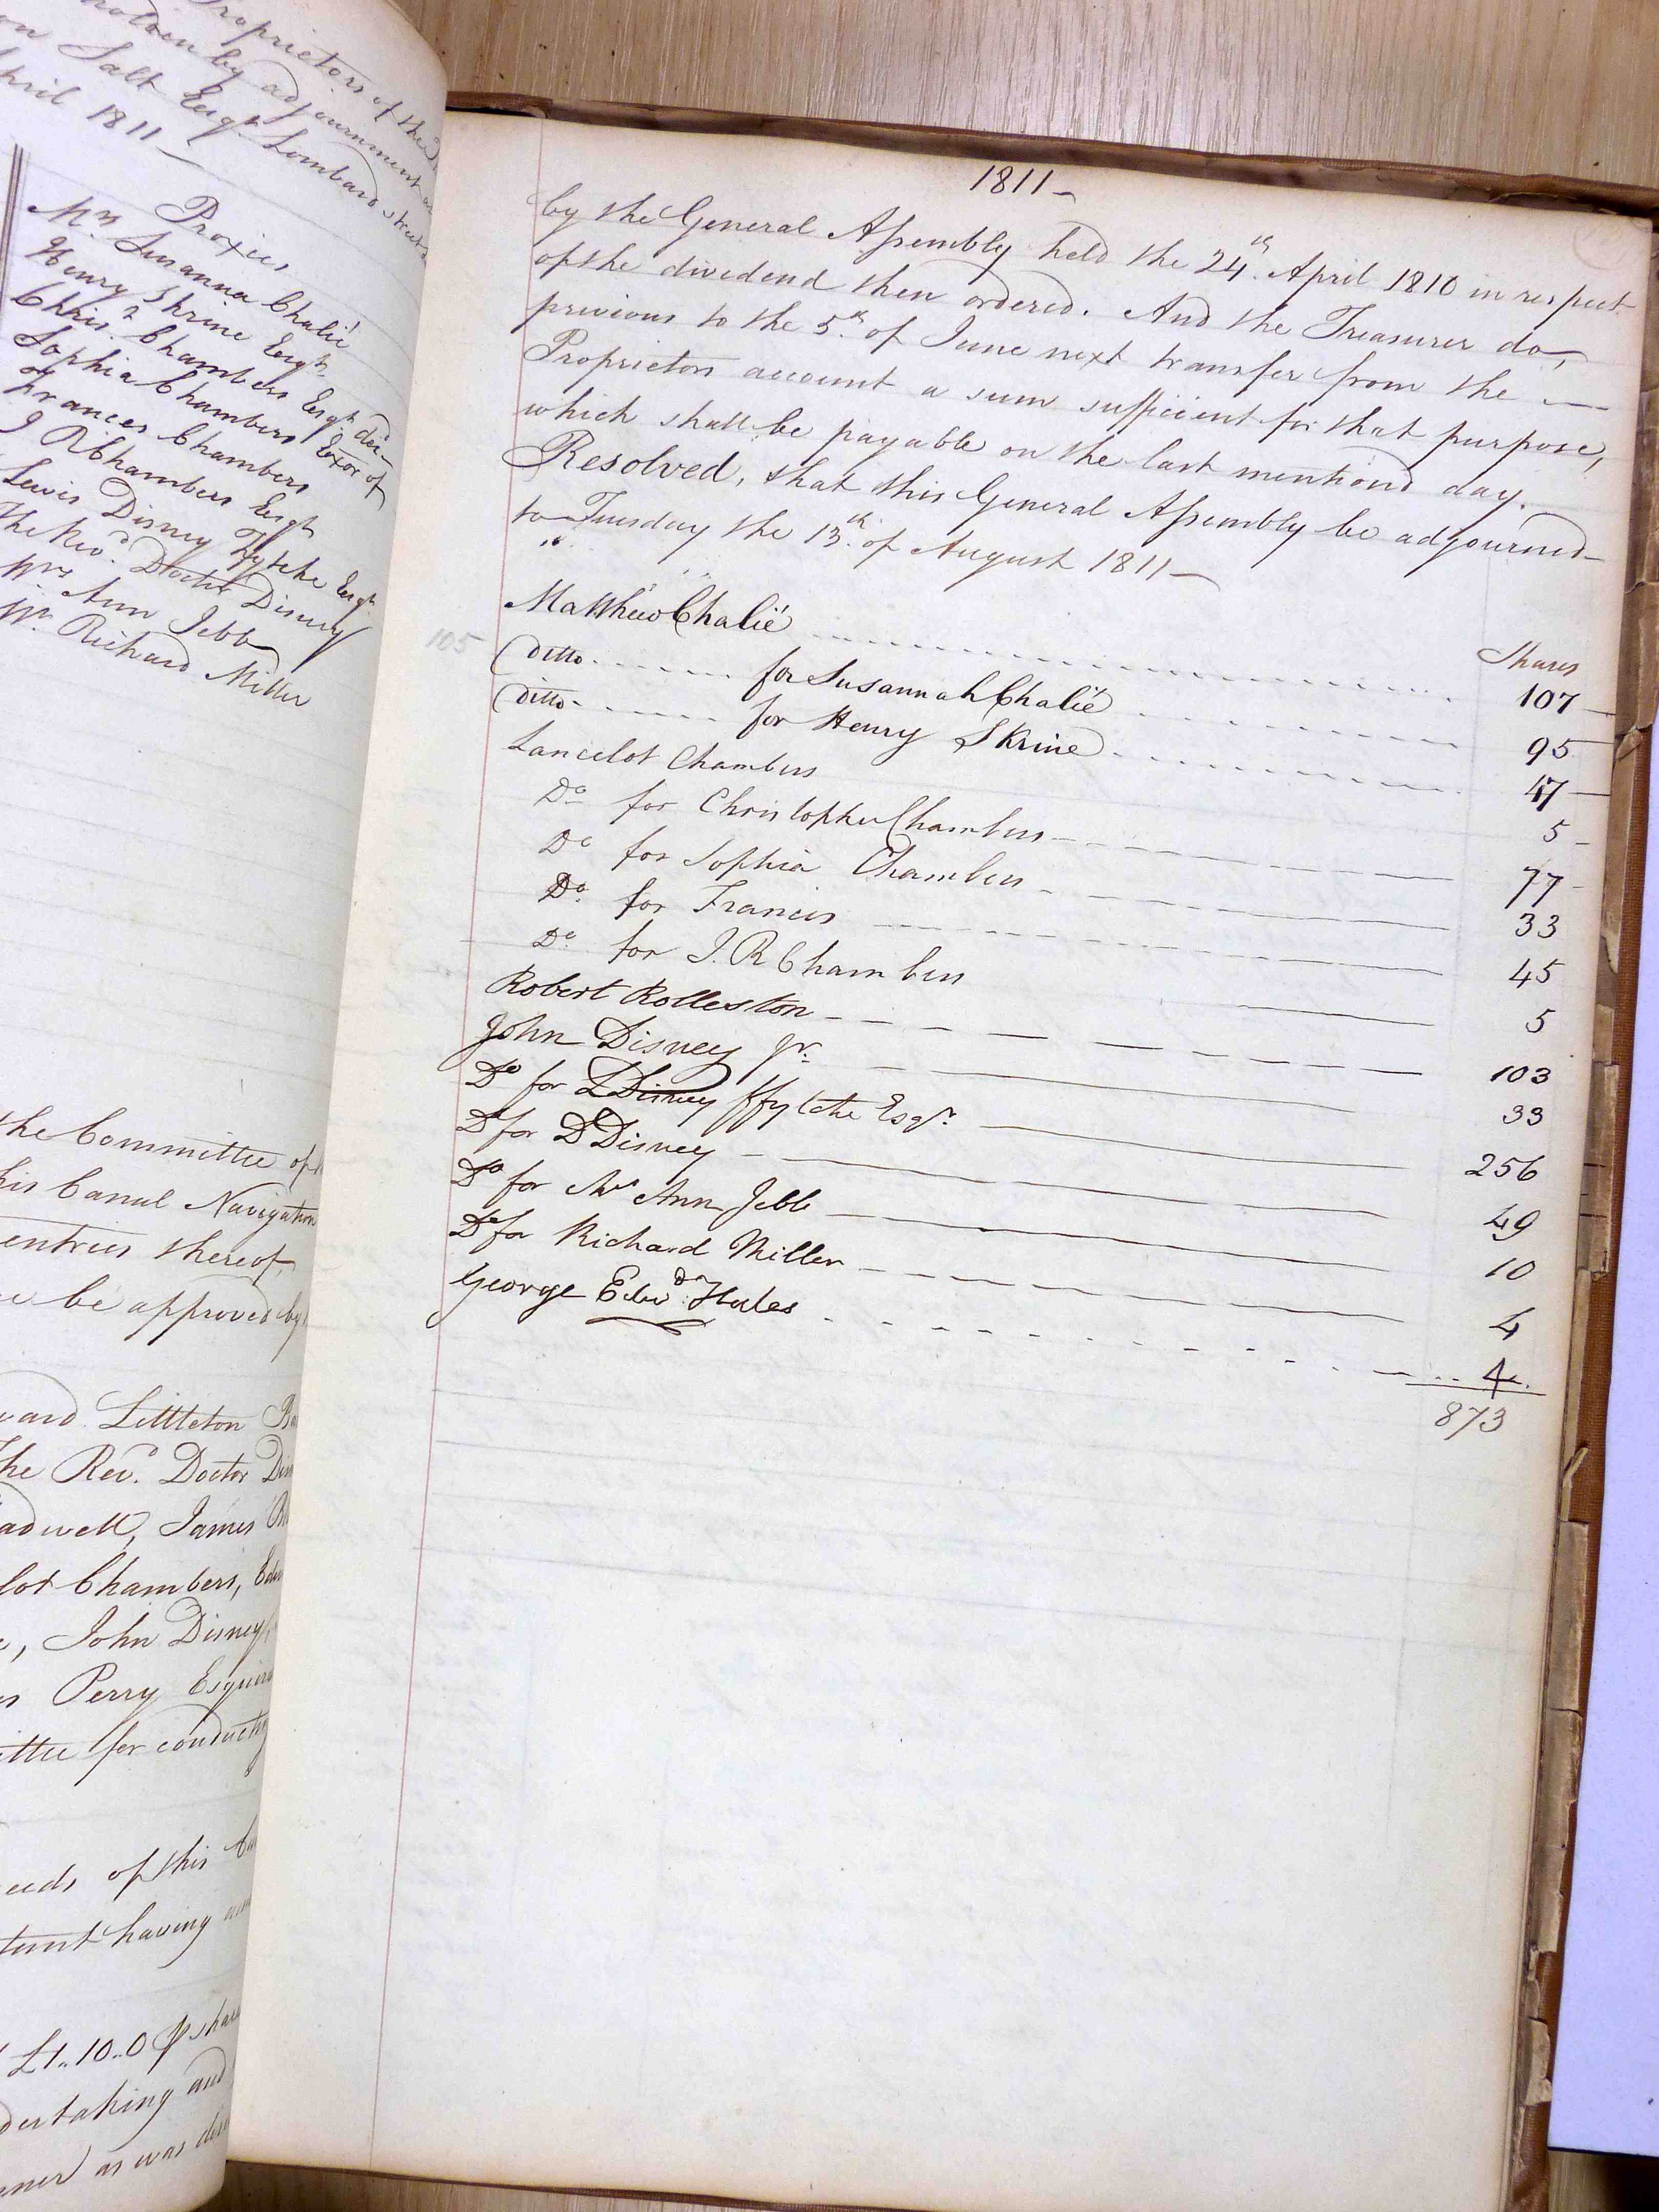 Proprietors of the
holden by adjournment
Salt Esqr Lombard Street
April 1811 —
Proxies
Mrs Susanna Chalié
Henry Skrine Esqr
Chrisr Chambers Esqr
Sophia Chambers Exor of
Frances Chambers
J R Chambers Esqr
Lewis Disney Ffytche Esqr
The Revd Doctor Disney
Mrs Ann Jebb
Mr Richard Miller
the Committee of
his Canal Navigation
entries thereof,
be approved by
ward Littleton
The Revd. Doctor
adwell, James
lot Chambers,
, John Disney
Perry Esquire
ittee for conducting
eeds of this
having
£1..10..0 p share
dertaking and
ner as was
1811 —
by the General Assembly held the 24th. April 1810 in respect
of the dividend then ordered. And the Treasurer do,
previous to the 5th. of June next transfer from the —
Proprietors account a sum sufficient for that purpose,
which shall be payable on the last mentiond day.
Resolved, that this General Assembly be adjourned —
to Tuesday the 13th. of August 1811 —
Shares
Matthew Chalié 107
105
ditto for Susannah Chalié 95
ditto for Henry Skrine 47
Lancelot Chambers 5
Do for Christopher Chambers 77
Do for Sophia Chambers 33
Do. for Francis 45
Do. for J. R Chambers 5
Robert Rolleston 103
John Disney Jr. 33
Do for L Disney ffytche Esqr. 256
Do for Dr Disney 49
Do for Mrs Ann Jebb 10
Do for Richard Miller 4
George Edwd Hales 4
873